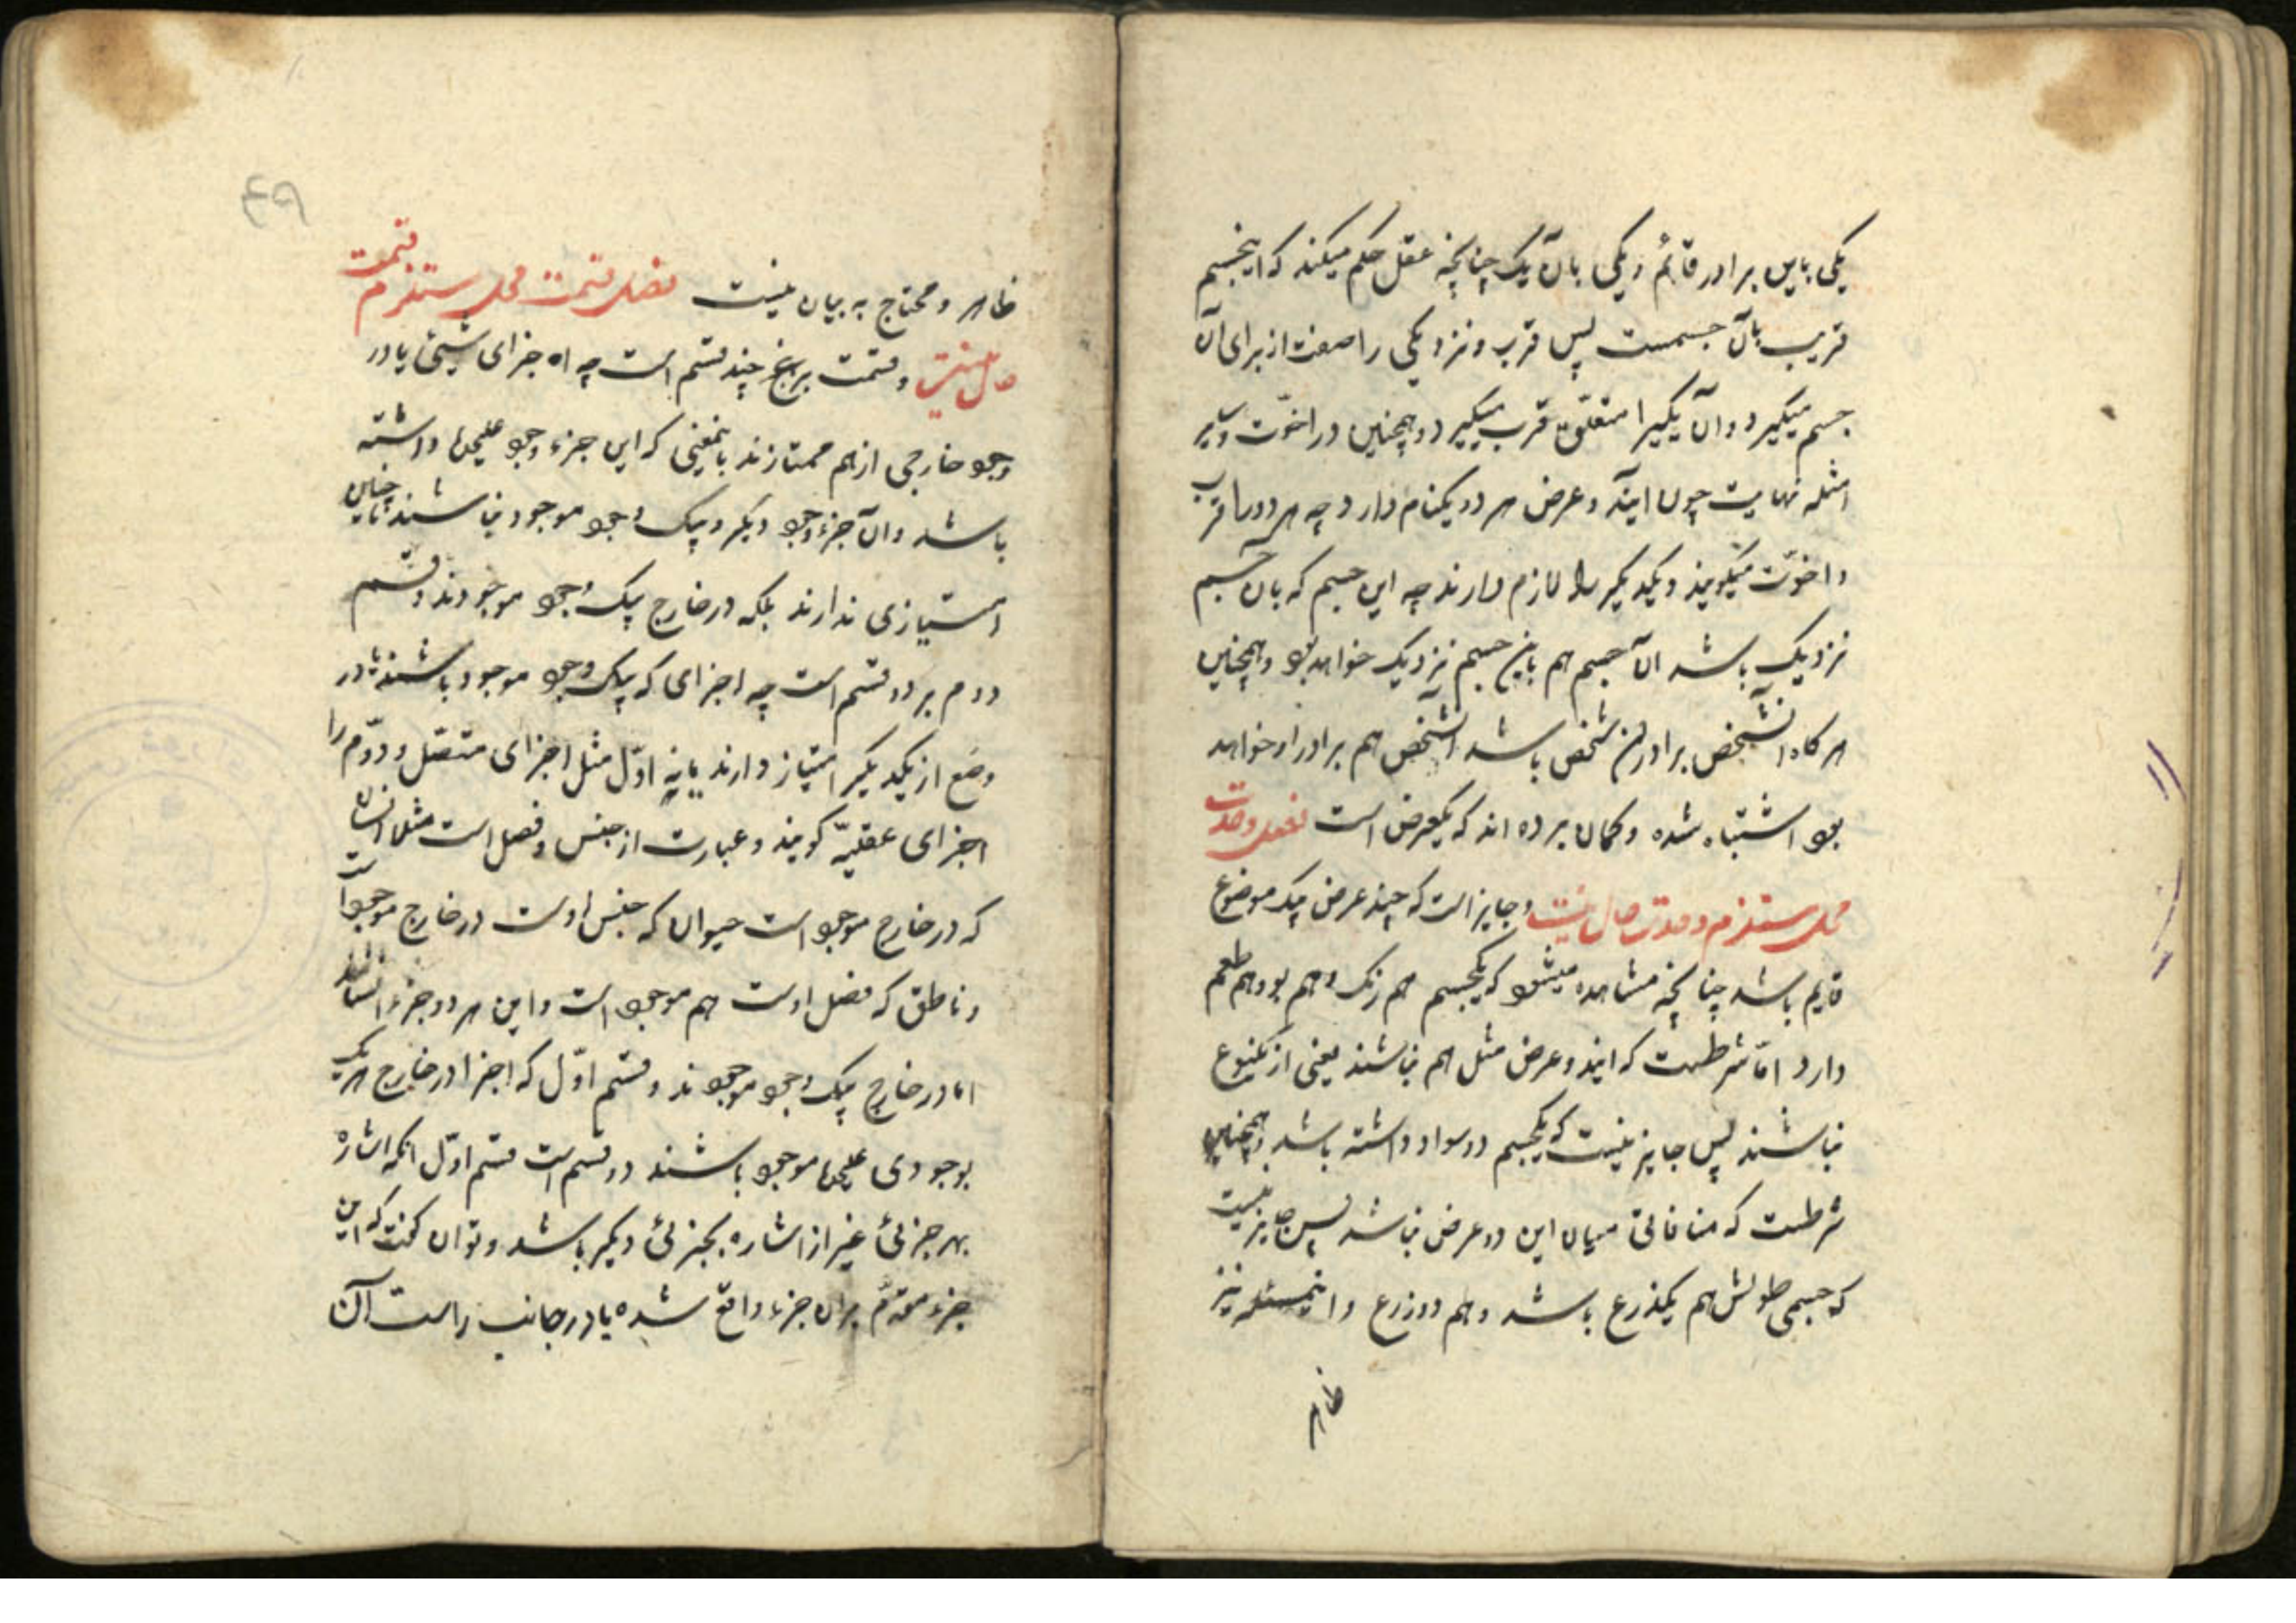 یکی باین برادر قائم و یکی بآن یک چنانچه عقل حکم میکند که اینجسم
قریب بآن جسمست پس قرب و نزدیکی را صفت از برای آن
جسم میگیرد و آن یکیرا متعلق قرب میگیرد و همچنین در اخوّت و سایر
امثله نهایت چون ایندو عرض هر دو یکنام دارد چه هر دو را قرب
و اخوّت میگویند و یکدیگر را لازم دارند چه این جسم که بآن جسم
نزدیک باشد آن جسم هم باین جسم نزدیک خواهد بود و همچنین
هرگاه اینشخص برادر آن شخص باشد آنشخص هم برادر او خواهد
بود اشتباه شده و گمان برده اند که یکعرض است فصل وحدت
محل مستلزم وحدت حال نیست و جایز است که چند عرض بیک موضوع
قایم باشد چنانچه مشاهده میشود که یکجسم هم رنگ و هم بو و هم طعم
دارد امّا شرطست که ایندو عرض مثل هم نباشند یعنی از یکنوع
نباشند پس جایز نیست که یکجسم دو سواد داشته باشد و همچنین
شرطست که منافاتی میان این دو عرض نباشد پس جایز نیست
که جسمی طولش هم یکذرع باشد و هم دو زرع و اینمسئله نیز
ظاهر
۴۹
ظاهر و محتاج به بیان نیست فصل قسمت محل مستلزم قسمت
حال نیست و قسمت بر چند قسم است چه اجزای شیئی یا در
وجود خارجی از هم ممتازند باینمعنی که این جزء وجود علیحده داشته
باشد و آن جزء وجود دیگر و بیک وجود موجود نباشند یا چنین
امتیازی ندارند بلکه در خارج بیک وجود موجودند و قسم
دوم بر دو قسم است چه اجزای که بیک وجود موجود باشند یا در
وضع از یکدیگر امتیاز دارند یا نه اوّل مثل اجزای متصل و دوّم را
اجزای عقلیّه گویند و عبارت از جنس و فصل است مثلا انسان
که در خارج موجود است حیوان که جنس اوست در خارج موجود است
و ناطق که فصل اوست هم موجود است و این هر دو جزء انسانند
امّا در خارج بیک وجود موجودند و قسم اوّل که اجزا در خارج هریک
بوجودی علیحده موجود باشند دو قسم است قسم اوّل آنکه اشاره
بهر جزئی غیر از اشاره بجزئی دیگر باشد و توان گفت که این
جزء مقدّم بر آن جزء واقع شده یا در جانب راست آن